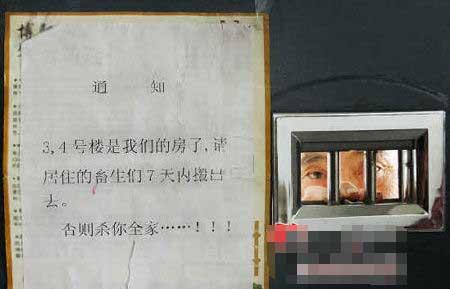 通 知
3,4号楼是我们的房了,请
居住的畜生们7天内搬出
去。
否则杀你全家……!!!